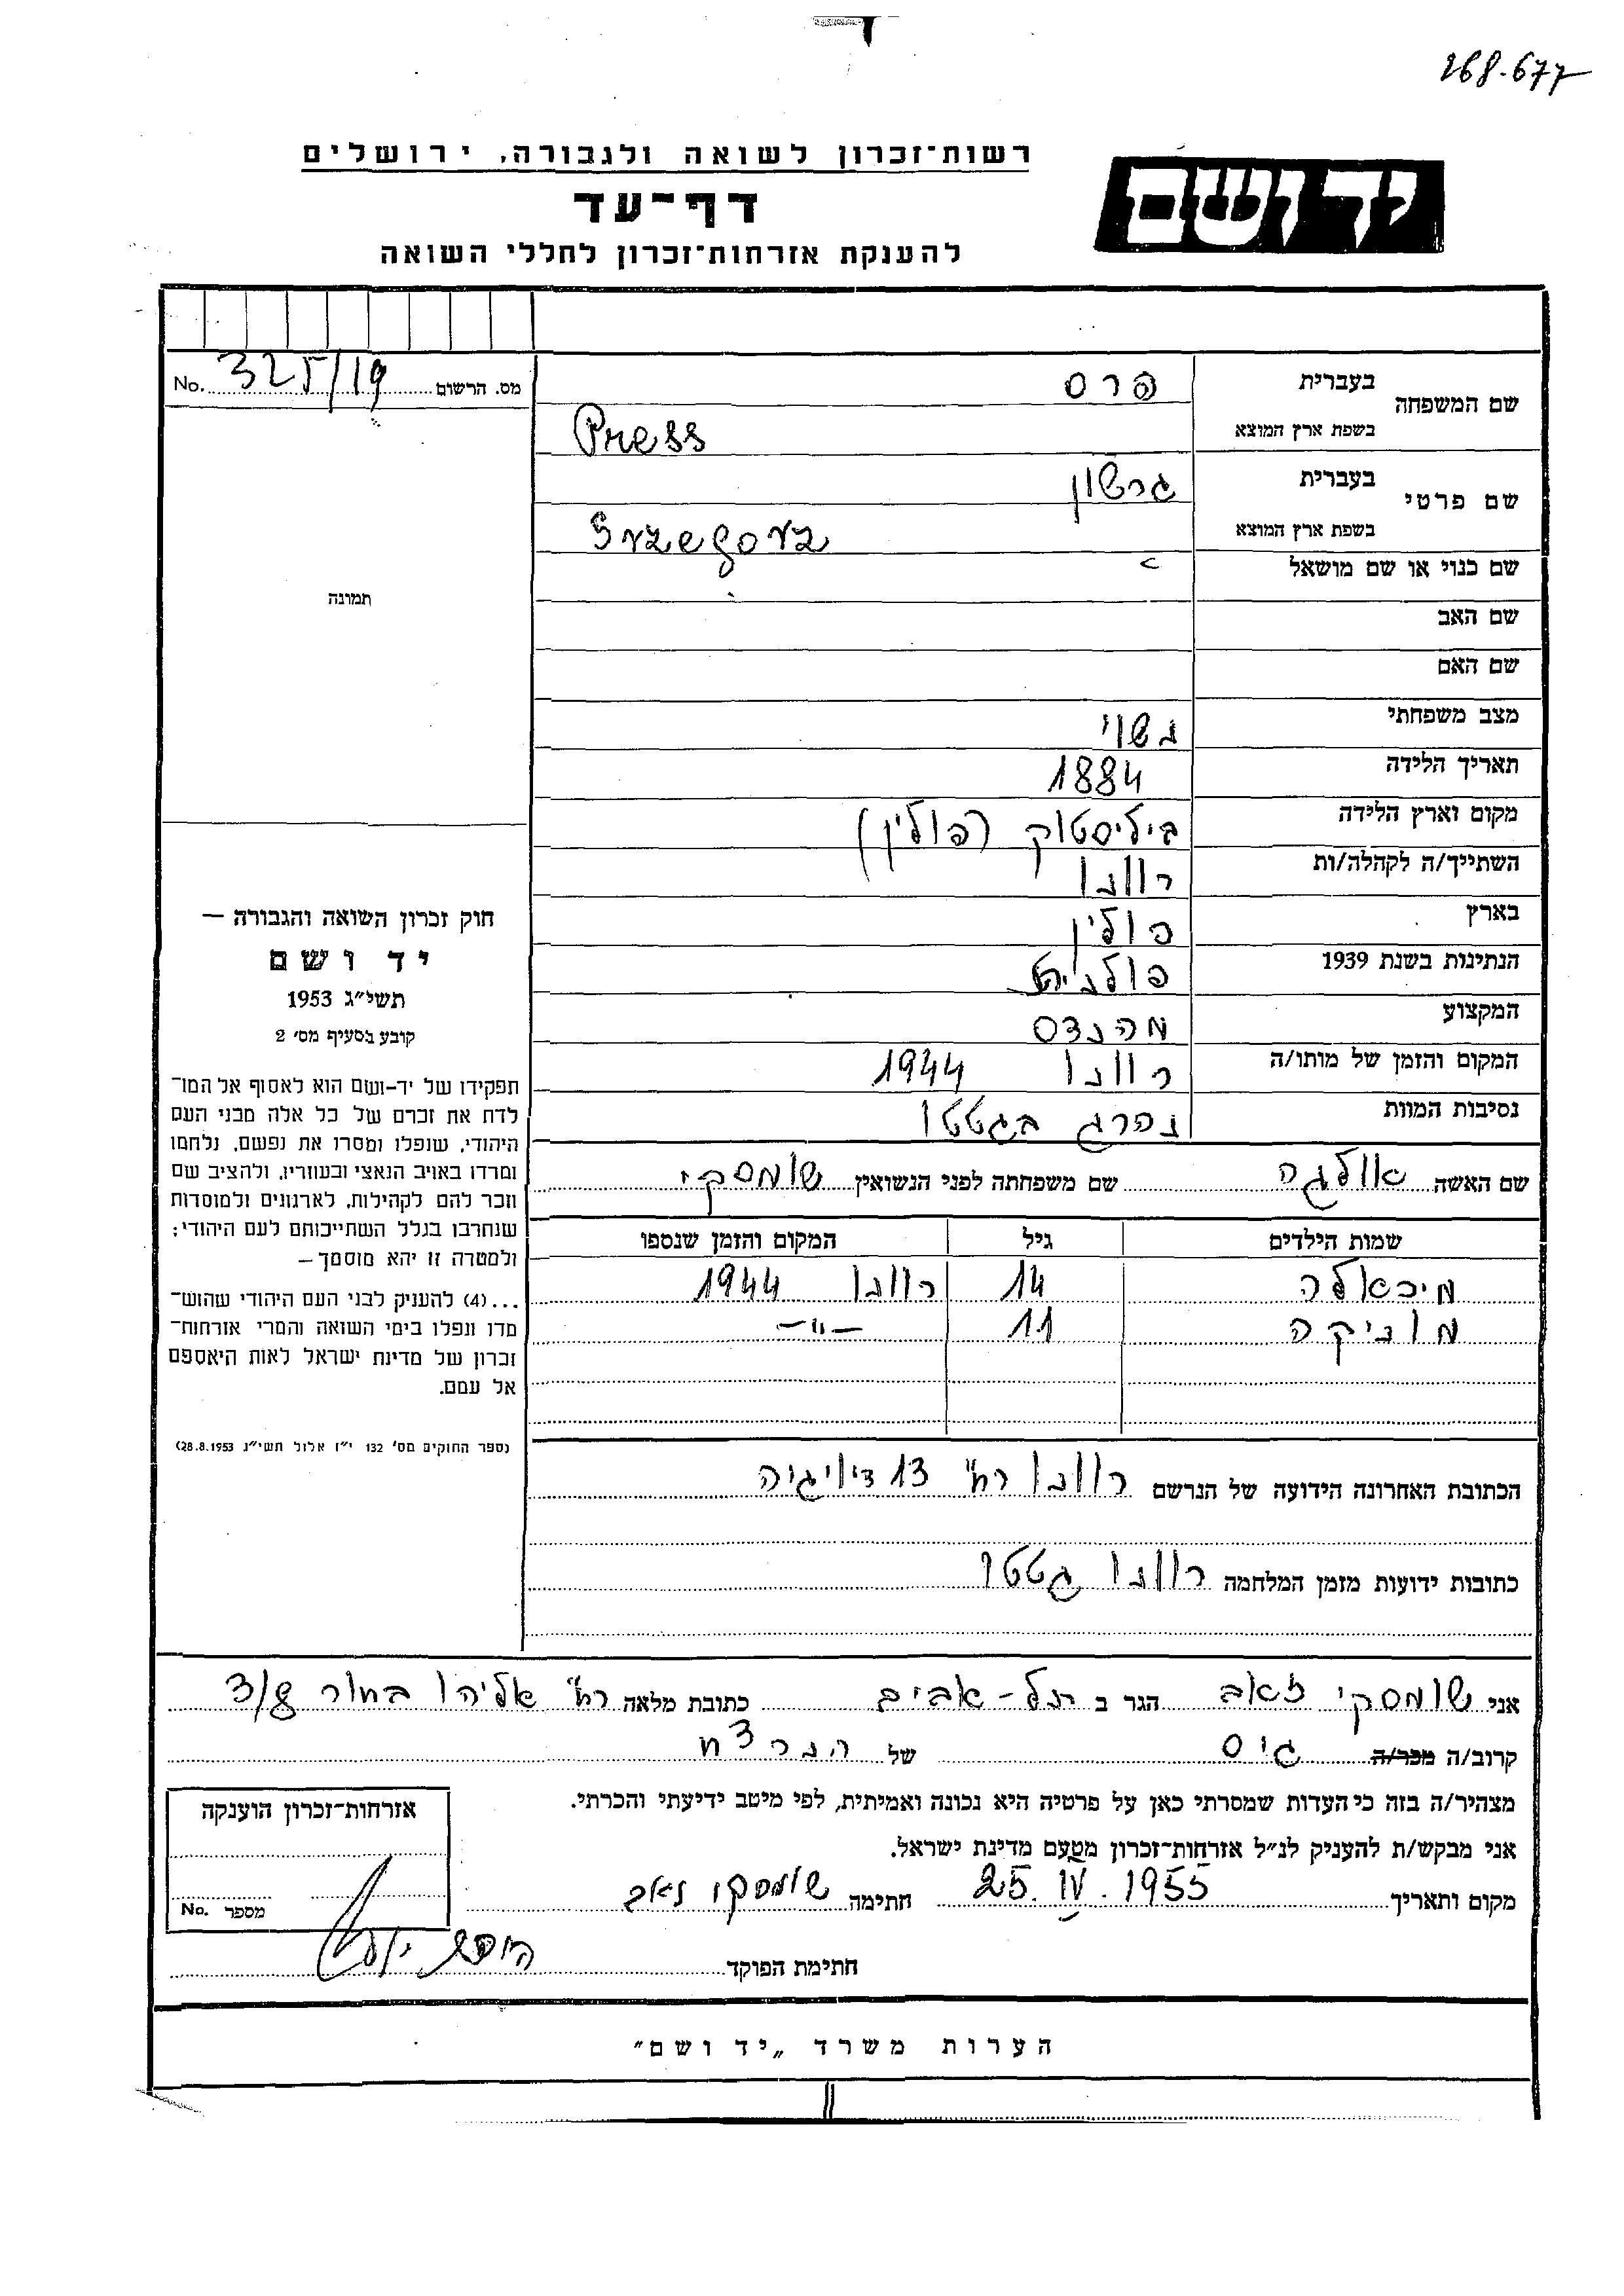 268.677
רשות־זכרון לשואה ולגבורה, ירושלים
יד ושם
דף־עד
להענקת אזרחות־זכרון לחללי השואה
מס. הרשום 325/19 No.
שם המשפחה בעברית פרס
בשפת ארץ המוצא Press
שם פרטי בעברית גרשון
בשפת ארץ המוצא Grzegorz
שם כנוי או שם מושאל
תמונה
שם האב
שם האם
מצב משפחתי נשוי
תאריך הלידה 1884
מקום וארץ הלידה ביליסטוק (פולין)
השתייך/ה לקהלה/ות רוונו
בארץ פולין
הנתינות בשנת 1939 פולנית
המקצוע מהנדס
המקום והזמן של מותו/ה רוונו 1944
נסיבות המוות נהרג בגטטו
חוק זכרון השואה והגבורה —
יד ושם
תשי״ג 1953
קובע בסעיף מס׳ 2
תפקידו של יד-ושם הוא לאסוף אל המו־
לדת את זכרם של כל אלה מבני העם
היהודי, שנפלו ומסרו את נפשם, נלחמו
ומרדו באויב הנאצי ובעוזריו, ולהציב שם
וזכר להם לקהילות, לארגונים ולמוסדות
שנחרבו בגלל השתייכותם לעם היהודי;
ולמטרה זו יהא מוסמך —
...(4) להעניק לבני העם היהודי שהוש־
מדו ונפלו בימי השואה והמרי אזרחות־
זכרון של מדינת ישראל לאות היאספם
אל עמם.
(ספר החוקים מס׳ 132 י״ז אלול תשי״ג 28.8.1953)
שם האשה אולגה שם משפחתה לפני הנשואין שומסקי
שמות הילדים גיל המקום והזמן שנספו
מיכאלה 14 רוונו 1944
מוניקה 11 —״—
הכתובת האחרונה הידועה של הנרשם רוונו רח׳ 13 דיויזיה
כתובות ידועות מזמן המלחמה רוונו גטטו
אני שומסקי זאב הגר ב תל-אביב כתובת מלאה רח׳ אליהו בחור 3/8
קרוב/ה מכר/ה גיס של הנרצח
מצהיר/ה בזה כי העדות שמסרתי כאן על פרטיה היא נכונה ואמיתית, לפי מיטב ידיעתי והכרתי.
אני מבקש/ת להעניק לנ״ל אזרחות־זכרון מטעם מדינת ישראל.
מקום ותאריך 25. IV. 1955 חתימה שומסקי זאב
אזרחות־זכרון הוענקה
מספר No.
חתימת הפוקד
הערות משרד „יד ושם״